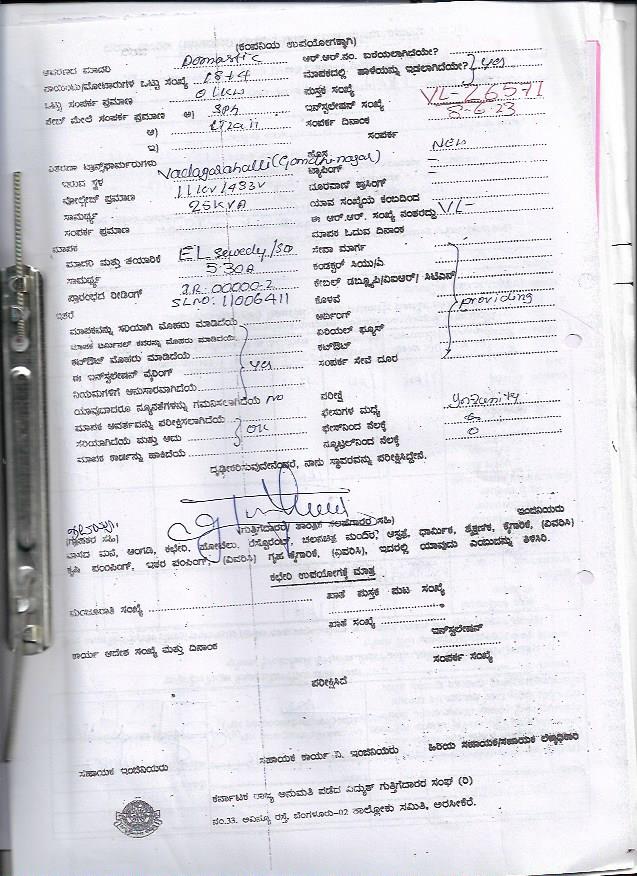 (ಕಂಪನಿಯ ಉಪಯೋಗಕ್ಕಾಗಿ)
ಆವರಣದ ಮಾದರಿ Domastic ಆರ್.ಆರ್.ನಂ. ಬರೆಯಲಾಗಿದೆಯೇ?
ಪಾಯಿಂಟು/ಮೋಟಾರುಗಳ ಒಟ್ಟು ಸಂಖ್ಯೆ 18+4 ಮಾಪಕದಲ್ಲಿ ಹಾಳೆಯನ್ನು ಇಡಲಾಗಿದೆಯೇ? yes
ಒಟ್ಟು ಸಂಪರ್ಕ ಪ್ರಮಾಣ 01KW ಪುಸ್ತಕ ಸಂಖ್ಯೆ VL-26571
ಪೇಟ್ ಮೇಲೆ ಸಂಪರ್ಕ ಪ್ರಮಾಣ ಅ) 3ph ಇನ್‌ಸ್ಟಲೇಷನ್ ಸಂಖ್ಯೆ 8-6-23
ಆ) ಸಂಪರ್ಕ ದಿನಾಂಕ
ಇ) ಸಂಪರ್ಕ
ವಿತರಣಾ ಟ್ರಾನ್ಸ್‌ಫಾರ್ಮರುಗಳು ಹೊಸ New
ಇರುವ ಸ್ಥಳ Vadagarahalli (Gandhinagar) ಟ್ಯಾಪಿಂಗ್
ವೋಲ್ಟೇಜ್ ಪ್ರಮಾಣ 11KV/433V ದೂರವಾಣಿ ಕ್ರಾಸಿಂಗ್
ಸಾಮರ್ಥ್ಯ 25KVA ಯಾವ ಸಂಖ್ಯೆಯ ಕಂಬದಿಂದ
ಸಂಪರ್ಕ ಪ್ರಮಾಣ ಈ ಆರ್.ಆರ್. ಸಂಖ್ಯೆ ನಂತರದ್ದು VL-
ಮಾಪಕ ಮಾಪಕ ಓದುವ ದಿನಾಂಕ
ಮಾದರಿ ಮತ್ತು ತಯಾರಿಕೆ EL Sewedy/ ಸೇವಾ ಮಾರ್ಗ
ಸಾಮರ್ಥ್ಯ 5-30A ಕಂಡಕ್ಟರ್ ಸಿಯು/ಎ
ಪ್ರಾರಂಭದ ರೀಡಿಂಗ್ I.R: 00000-2 ಕೇಬಲ್ ಡಬ್ಲ್ಯೂಪಿ/ವಿಐಆರ್/ ಸಿಟಿಎಸ್
ಇತರೆ SL no: 11006411 ಕೊಳವೆ providing
ಮಾಪಕವನ್ನು ಸರಿಯಾಗಿ ಮೊಹರು ಮಾಡಿದೆಯೆ ಅರ್ಥಿಂಗ್
ಮಾಪಕ ಟರ್ಮಿನಲ್ ಕವರನ್ನು ಮೊಹರು ಮಾಡಿದೆಯೆ ಏರಿಯಲ್ ಫ್ಯೂಸ್
ಕಟ್‌ಔಟ್ ಮೊಹರು ಮಾಡಿದೆಯೆ ಕಟ್‌ಔಟ್
ಈ ಇನ್‌ಸ್ಟಲೇಷನ್ ವೈರಿಂಗ್ yes ಸಂಪರ್ಕ ಸೇವೆ ದೂರ
ನಿಯಮಗಳಿಗೆ ಅನುಸಾರವಾಗಿದೆಯೆ
ಯಾವುದಾದರೂ ನ್ಯೂನತೆಗಳನ್ನು ಗಮನಿಸಲಾಗಿದೆಯೆ no ಪರೀಕ್ಷೆ
ಮಾಪಕ ಆವರ್ತವನ್ನು ಪರೀಕ್ಷಿಸಲಾಗಿದೆಯೆ ಫೇಸುಗಳ ಮಧ್ಯೆ Infinity
ಸರಿಯಾಗಿದೆಯೆ ಮತ್ತು ಅದು OK ಫೇಸ್‌ನಿಂದ ನೆಲಕ್ಕೆ 0
ಮಾಪಕ ಕಾರ್ಡನ್ನು ಹಾಕಿದೆಯೆ ನ್ಯೂಟ್ರಲ್‌ನಿಂದ ನೆಲಕ್ಕೆ 0
ದೃಢೀಕರಿಸುವುದೇನೆಂದರೆ, ನಾನು ಸ್ಥಾವರವನ್ನು ಪರೀಕ್ಷಿಸಿದ್ದೇನೆ.
(ಗ್ರಾಹಕರ ಸಹಿ) (ಗುತ್ತಿಗೆದಾರರ ತಾಂತ್ರಿಕ ಸಲಹೆಗಾರರ ಸಹಿ) ಇಂಜಿನಿಯರು
ವಾಸದ ಮನೆ, ಅಂಗಡಿ, ಕಛೇರಿ, ಹೋಟೆಲು, ರೆಸ್ಟೊರೆಂಟ್, ಚಲನಚಿತ್ರ ಮಂದಿರ, ಆಸ್ಪತ್ರೆ, ಧಾರ್ಮಿಕ, ಶೈಕ್ಷಣಿಕ, ಕೈಗಾರಿಕೆ, (ವಿವರಿಸಿ)
ಕೃಷಿ ಪಂಪಿಂಗ್, ಇತರ ಪಂಪಿಂಗ್, (ವಿವರಿಸಿ) ಗೃಹ ಕೈಗಾರಿಕೆ, (ವಿವರಿಸಿ), ಇದರಲ್ಲಿ ಯಾವುದು ಎಂಬುದನ್ನು ತಿಳಿಸಿರಿ.
ಕಛೇರಿ ಉಪಯೋಗಕ್ಕೆ ಮಾತ್ರ
ಮಂಜೂರಾತಿ ಸಂಖ್ಯೆ ಖಾತೆ ಪುಸ್ತಕ ಪುಟ ಸಂಖ್ಯೆ
ಖಾತೆ ಸಂಖ್ಯೆ
ಕಾರ್ಯ ಆದೇಶ ಸಂಖ್ಯೆ ಮತ್ತು ದಿನಾಂಕ ಇನ್‌ಸ್ಟಲೇಷನ್
ಸಂಪರ್ಕ ಸಂಖ್ಯೆ
ಪರೀಕ್ಷಿಸಿದೆ
ಸಹಾಯಕ ಇಂಜಿನಿಯರು ಸಹಾಯಕ ಕಾರ್ಯ ನಿ. ಇಂಜಿನಿಯರು ಹಿರಿಯ ಸಹಾಯಕ/ಸಹಾಯಕ ಲೆಕ್ಕಾಧಿಕಾರಿ
ಕರ್ನಾಟಕ ರಾಜ್ಯ ಅನುಮತಿ ಪಡೆದ ವಿದ್ಯುತ್ ಗುತ್ತಿಗೆದಾರರ ಸಂಘ (ರಿ)
ನಂ.33. ಅವಿನ್ಯೂ ರಸ್ತೆ, ಬೆಂಗಳೂರು-02 ತಾಲ್ಲೋಕು ಸಮಿತಿ, ಅರಸೀಕೆರೆ.